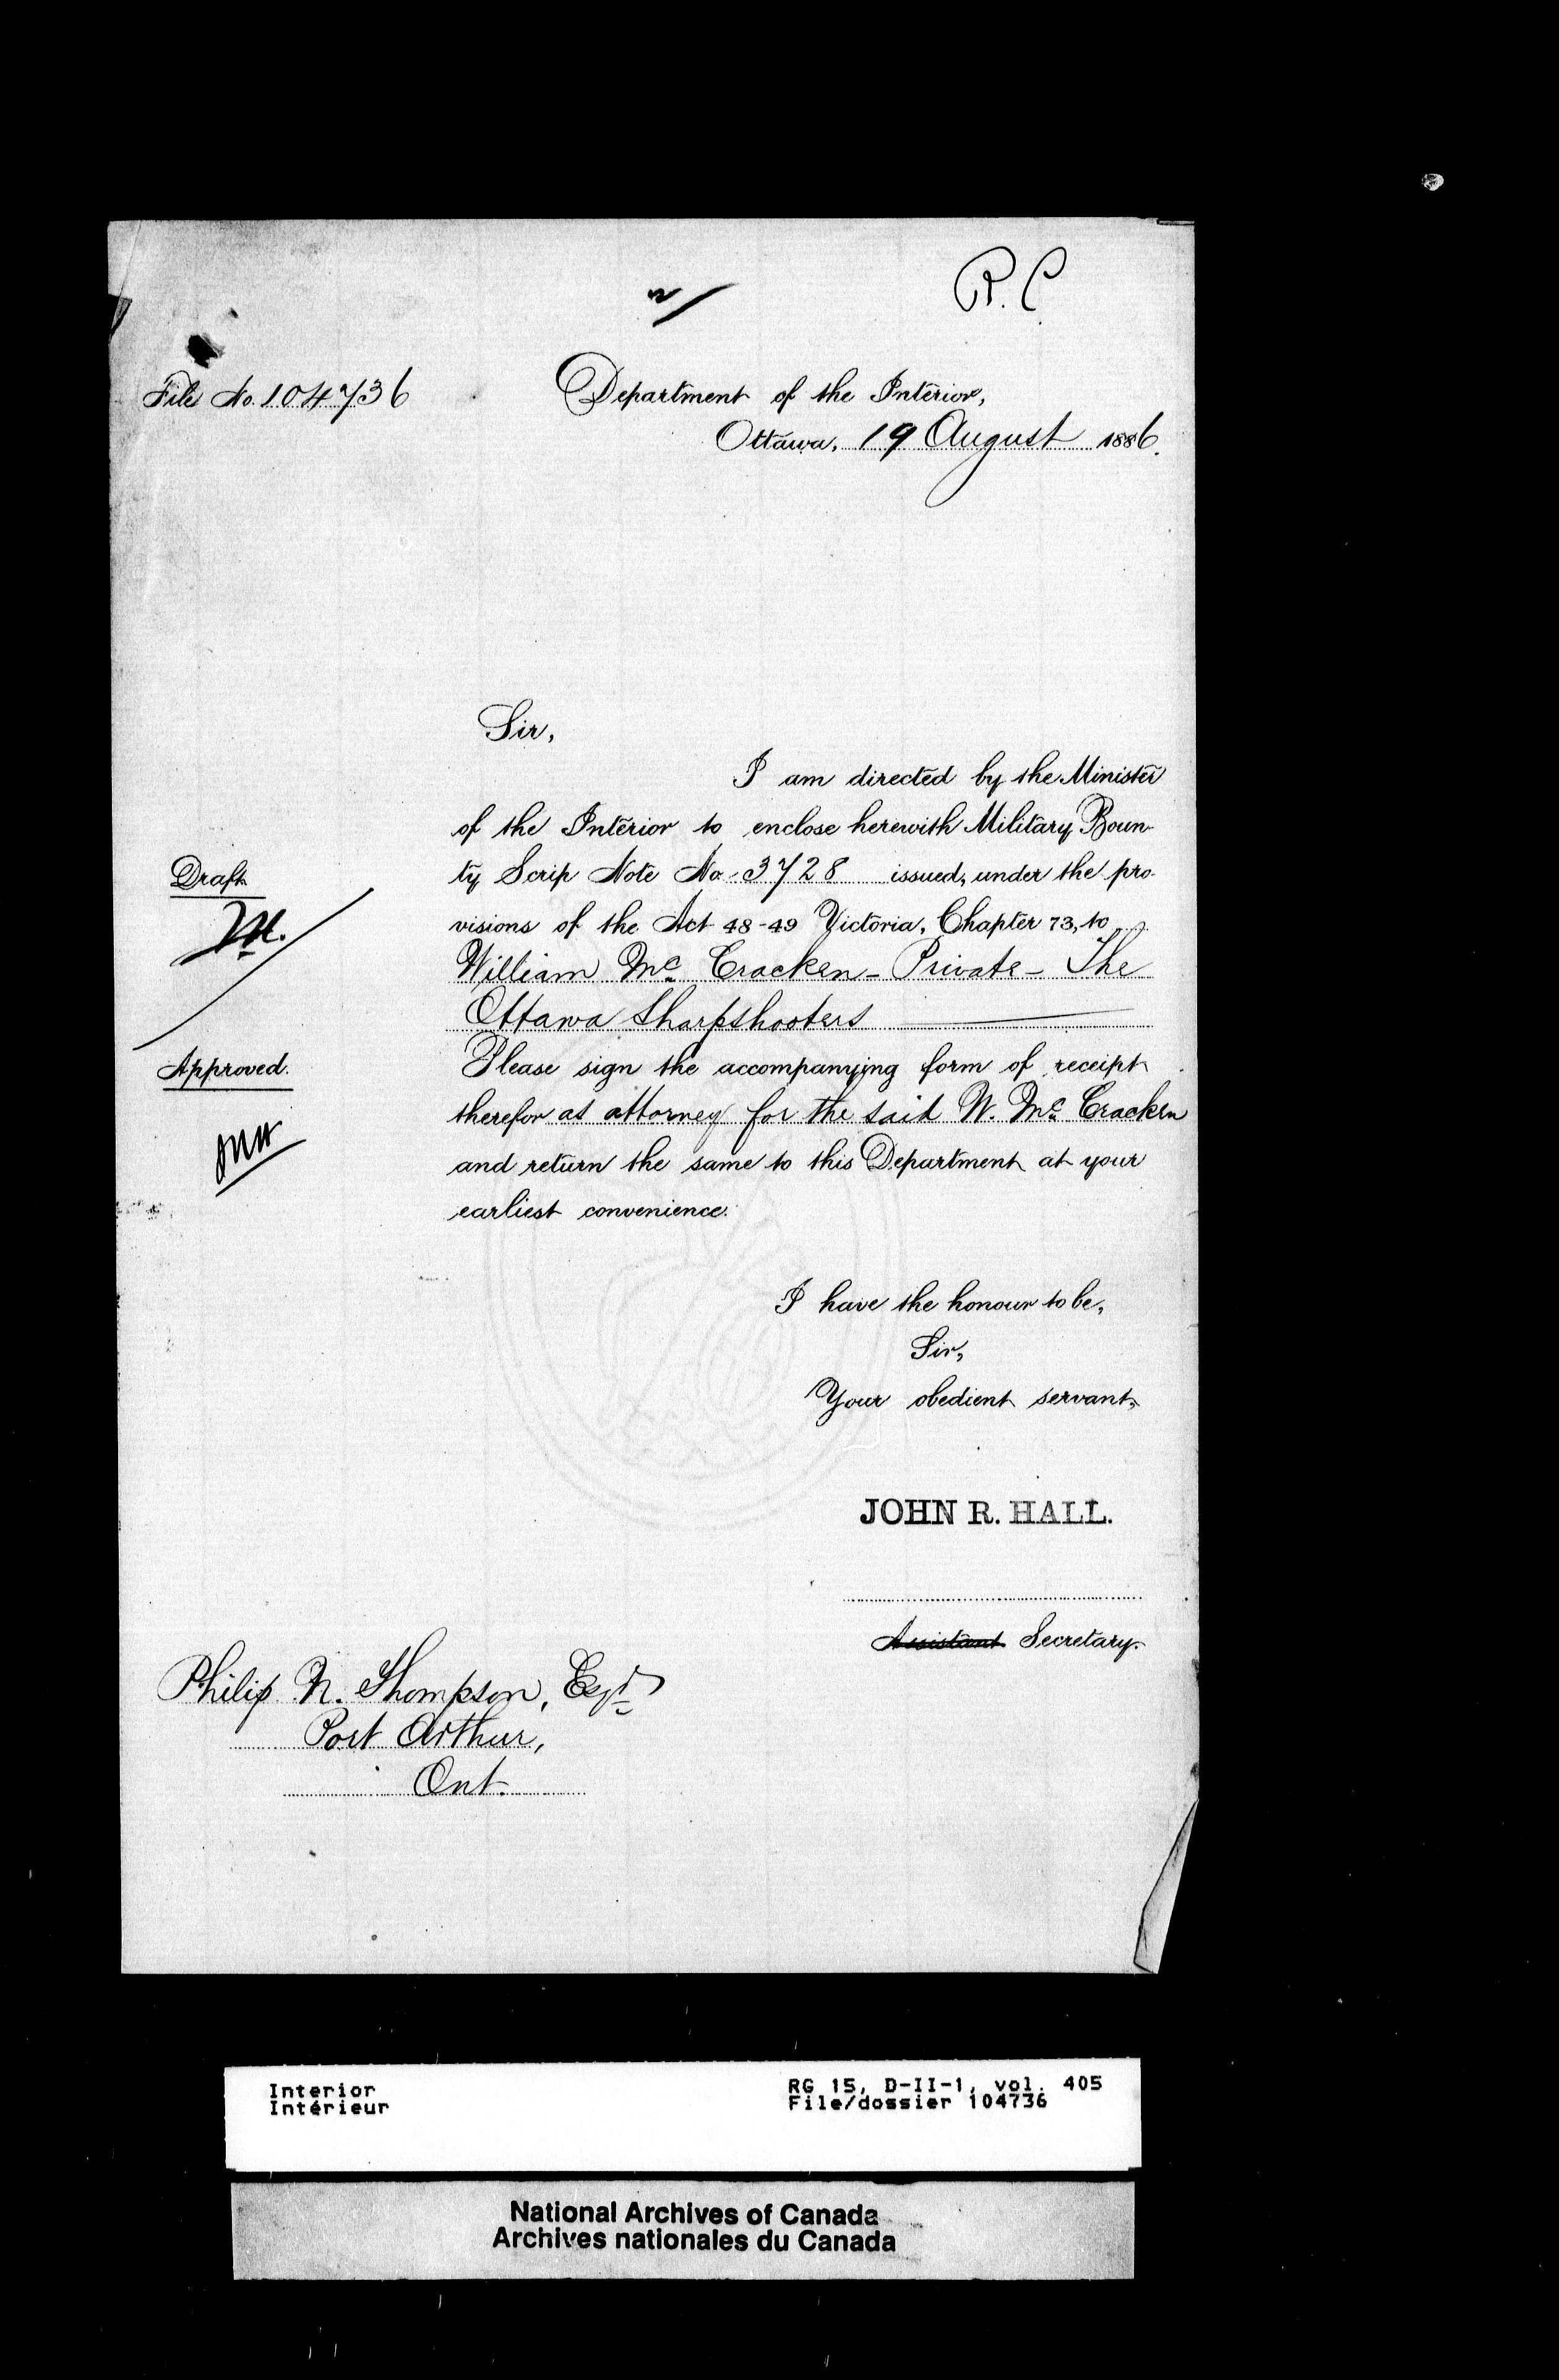 R. C.
File No. 104736
Department of the Interior,
Ottawa, 19 August 1886.
Sir,
I am directed by the Minister
of the Interior to enclose herewith Military Boun-
ty Scrip Note No. 3728 issued, under the pro-
visions of the Act 48-49 Victoria, Chapter 73, to
William Mc Cracken - Private - The
Ottawa Sharpshooters
Please sign the accompanying form of receipt
therefor as attorney for the said W. Mc Cracken
and return the same to this Department at your
earliest convenience.
Draft
Approved.
I have the honour to be,
Sir,
Your obedient servant,
JOHN R. HALL.
Assistant Secretary.
Philip N. Thompson, Esqr
Port Arthur,
Ont.
Interior
Intérieur
RG 15, D-II-1, vol. 405
File/dossier 104736
National Archives of Canada
Archives nationales du Canada